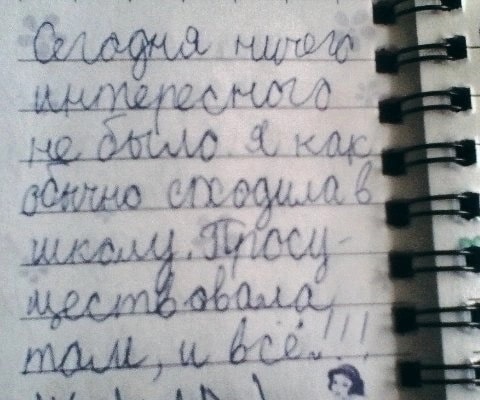 Сегодня ничего
интересного
не было. Я как
обычно сходила в
школу. Просу-
ществовала
там, и всё.!!!